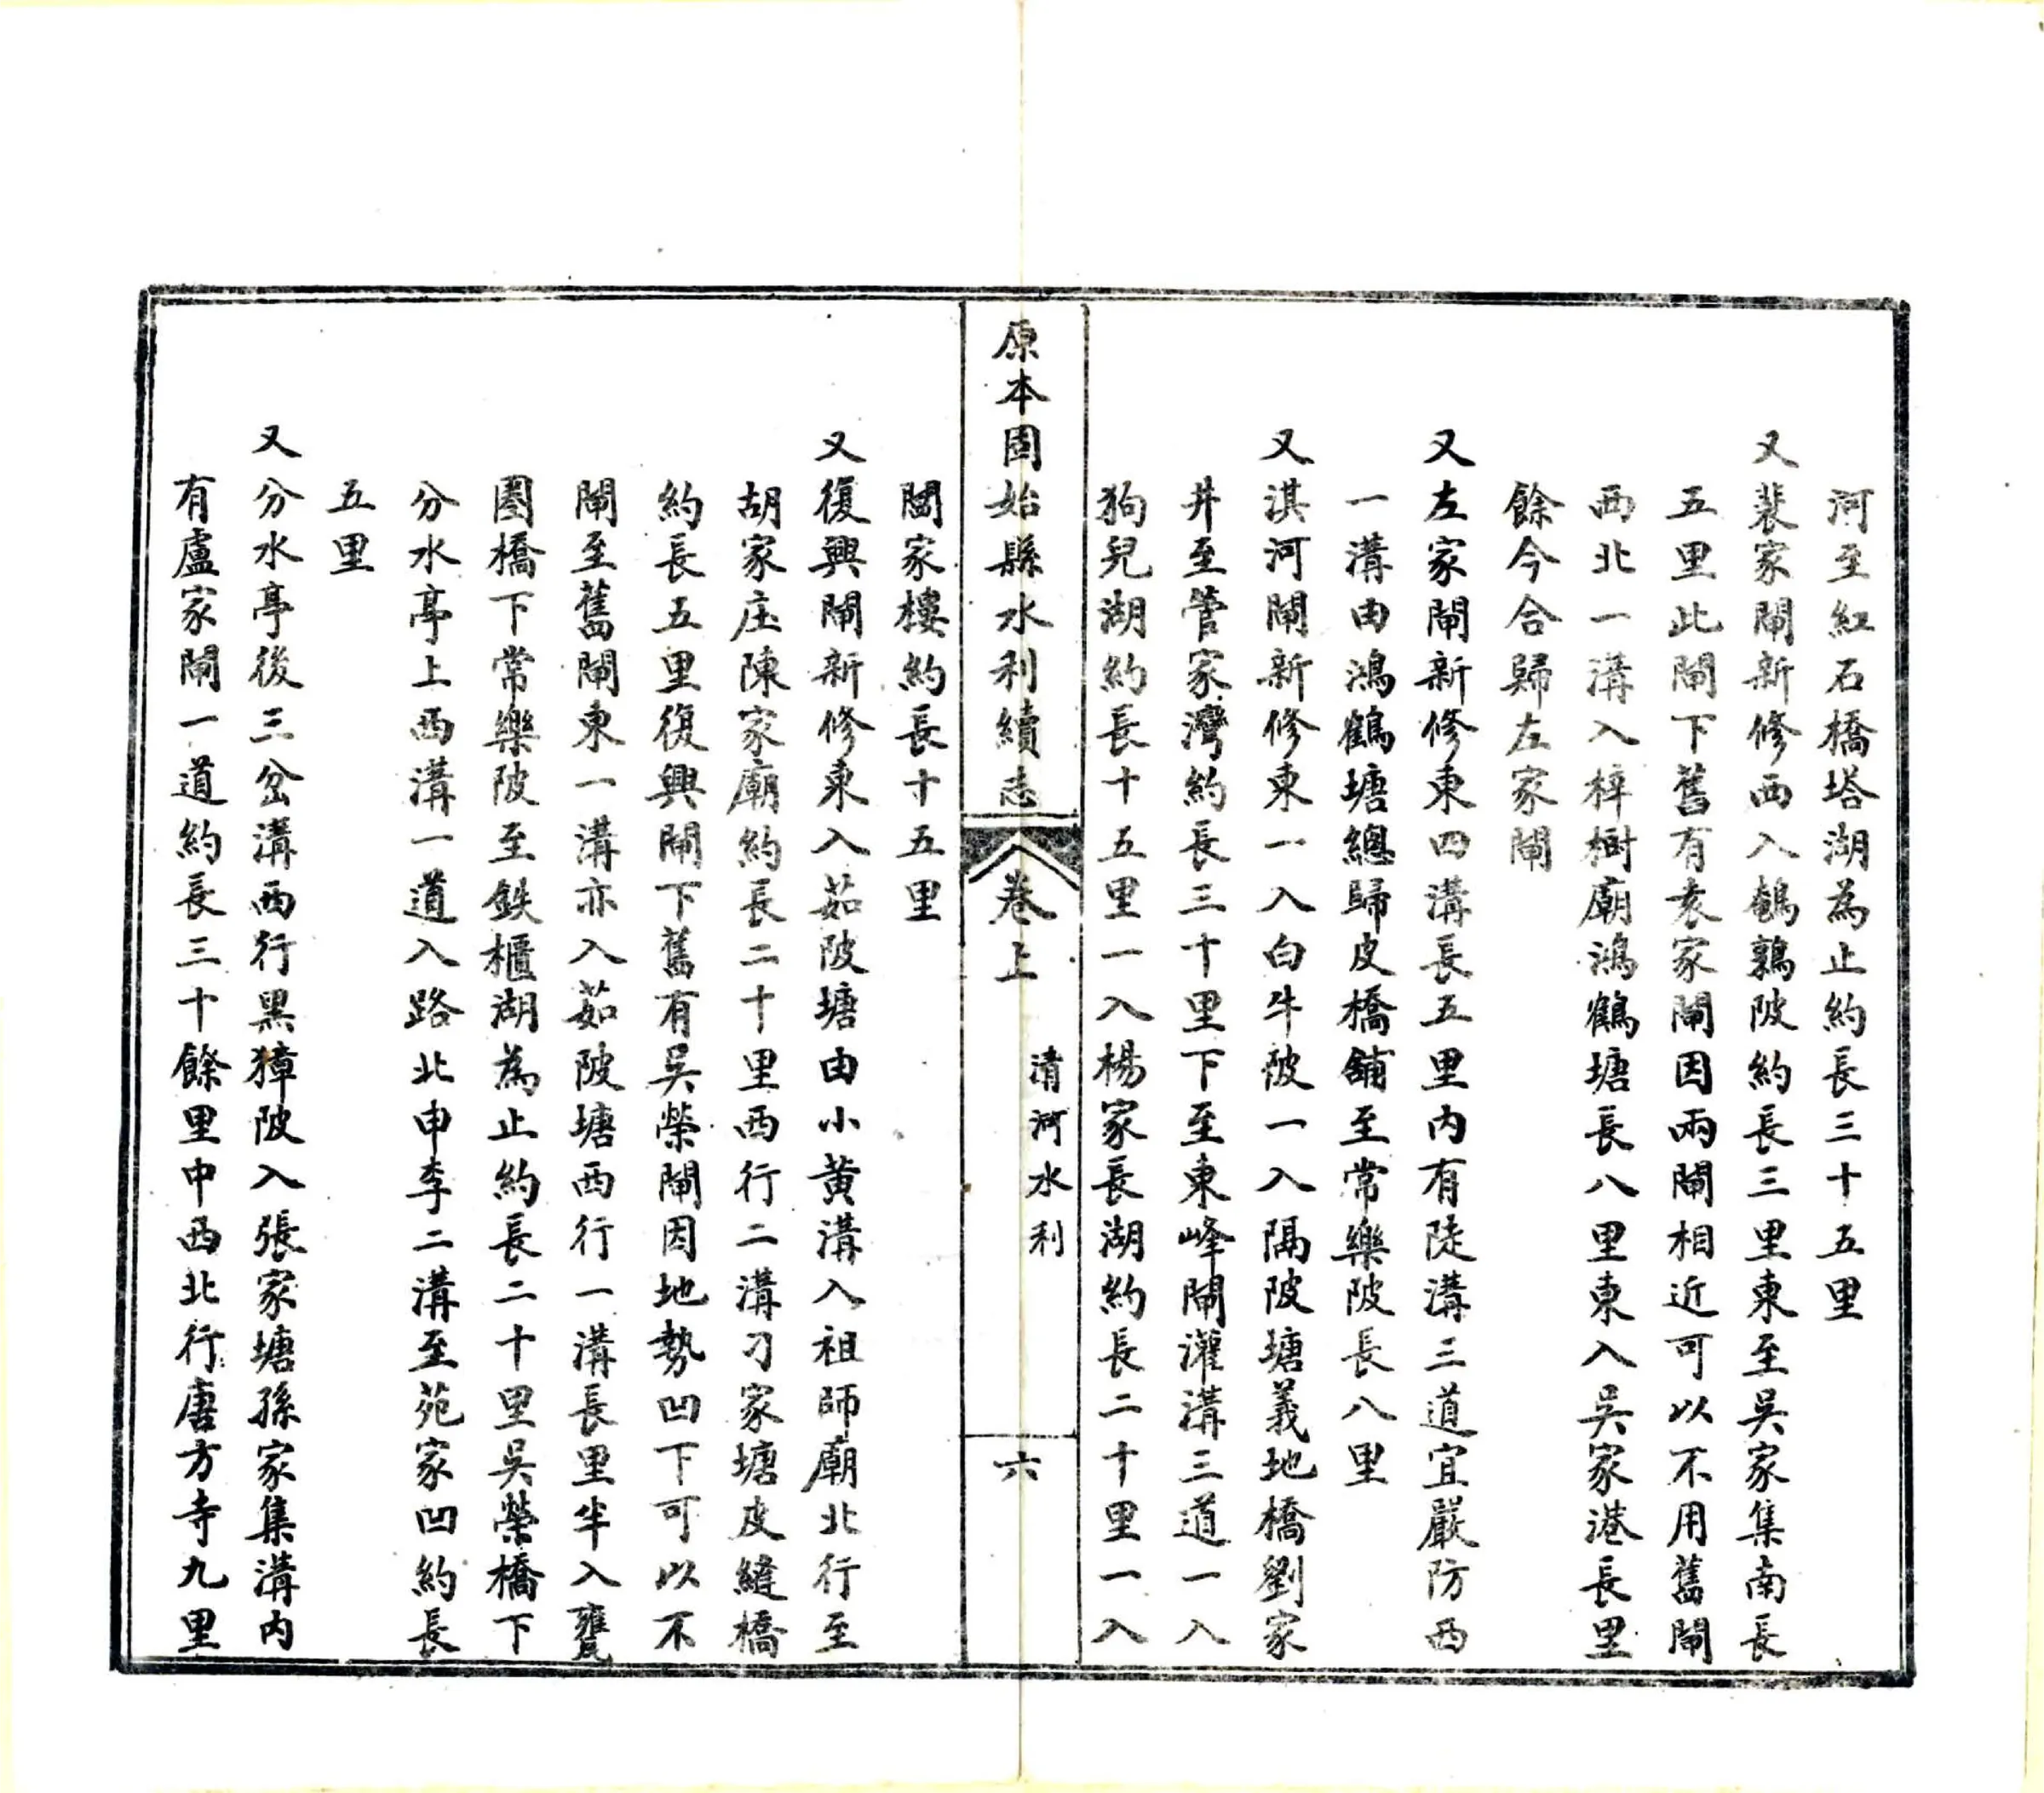 河至紅石橋塔湖為止約長三十五里
又裴家閘新修西入鵪鶉陂約長三里東至吳家集南長
五里此閘下舊有袁家閘因兩閘相近可以不用舊閘
西北一溝入梓樹廟鴻鶴塘長八里東入吳家港長里
餘今合歸左家閘
又左家閘新修東四溝長五里內有陡溝三道宜嚴防西
一溝由鴻鶴塘總歸皮橋舖至常樂陂長八里
又淇河閘新修東一入白牛陂一入隔陂塘義地橋劉家
井至管家灣約長三十里下至東峰閘灌溝三道一入
狗兒湖約長十五里一入楊家長湖約長二十里一入
原本固始縣水利續志
卷上
清河水利
六
閻家樓約長十五里
又復興閘新修東入茹陂塘由小黃溝入祖師廟北行至
胡家庄陳家廟約長二十里西行二溝刁家塘皮縫橋
約長五里復興閘下舊有吳榮閘因地勢凹下可以不
閘至舊閘東一溝亦入茹陂塘西行一溝長里半入甕
圈橋下常樂陂至鉄櫃湖為止約長二十里吳榮橋下
分水亭上西溝一道入路北申李二溝至苑家凹約長
五里
又分水亭後三岔溝西行黑獐陂入張家塘孫家集溝內
有盧家閘一道約長三十餘里中西北行唐方寺九里